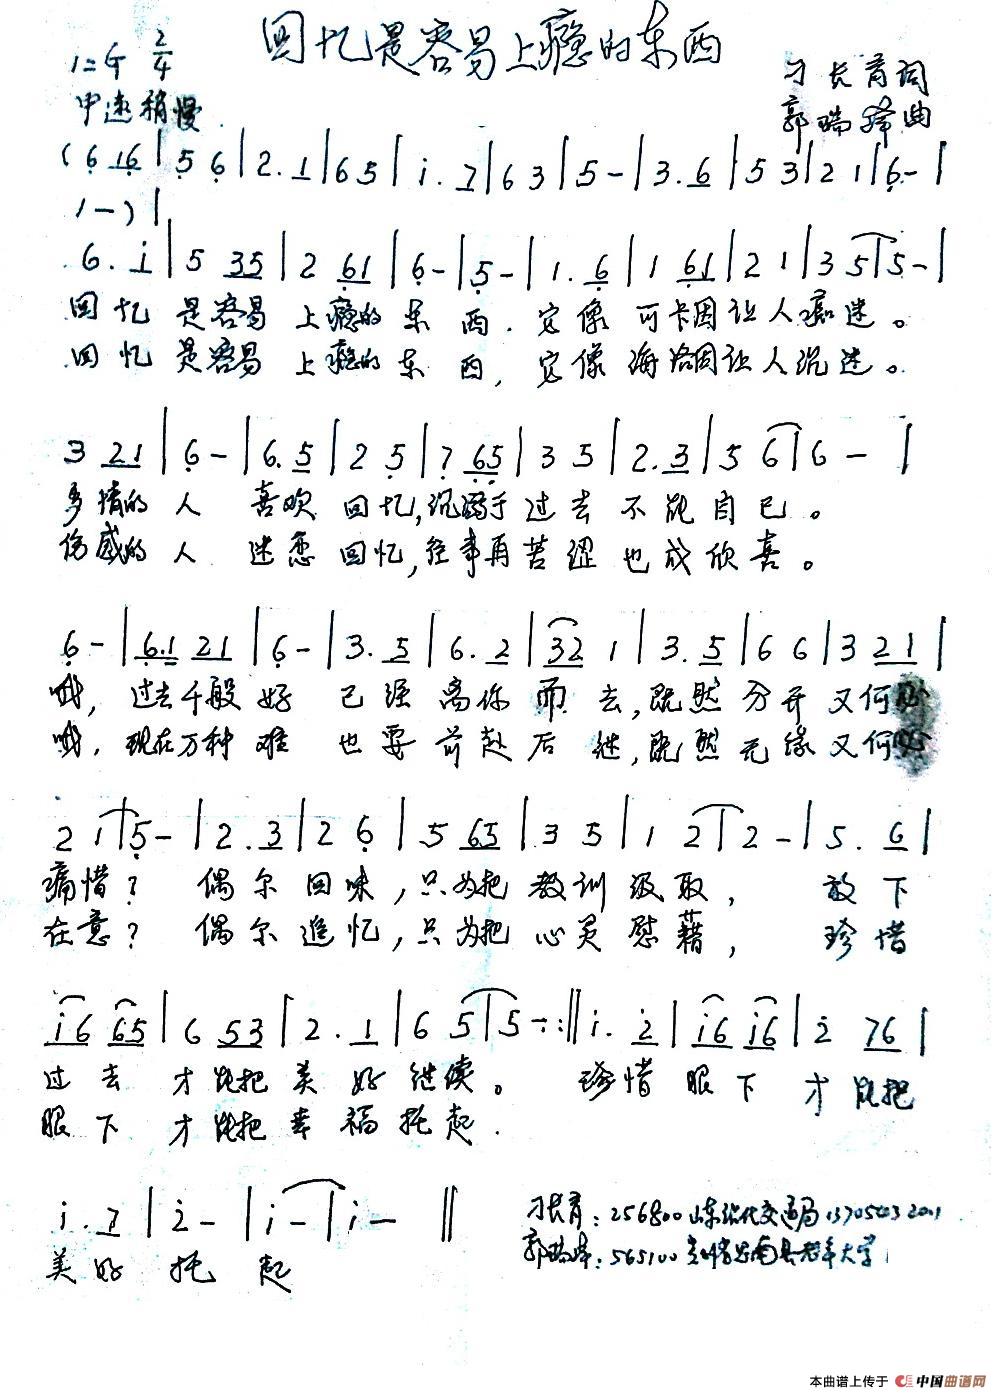 回忆是容易上瘾的东西
1=G 2/4
中速稍慢
刁长育词
郭瑞 曲
(6 16 | 5 6 | 2. 1 | 6 5 | i. 7 | 6 3 | 5 - | 3. 6 | 5 3 | 2 1 | 6 - |
1 - ) |
6. i | 5 35 | 2 61 | 6 - | 5 - | 1. 6 | 1 61 | 2 1 | 3 5 | 5 - |
回忆 是容易 上瘾的 东 西. 它像 可卡因让人痴迷。
回忆 是容易 上瘾的 东 西, 它像 海洛因让人沉迷。
3 21 | 6 - | 6. 5 | 2 5 | 7 65 | 3 5 | 2. 3 | 5 6 | 6 - |
多情的 人 喜欢 回忆,沉溺于过去不能自已。
伤感的 人 迷恋 回忆,往事再苦涩也成欣喜。
6 - | 6.1 21 | 6 - | 3. 5 | 6. 2 | 32 1 | 3. 5 | 6 6 | 3 21 |
哦, 过去千般 好 已经 离你 而 去,既然 分开 又何必
哦, 现在万种 难 也要 前赴 后 继,既然 无缘 又何必
2 1 | 5 - | 2. 3 | 2 6 | 5 65 | 3 5 | 1 2 | 2 - | 5. 6 |
痛惜? 偶尔 回味,只为把 教训 汲取, 放下
在意? 偶尔 追忆,只为把 心灵 慰藉, 珍惜
i6 65 | 6 53 | 2. 1 | 6 5 | 5 - :‖ i. 2 | i6 i6 | 2 76 |
过去 才能把 美好 继续。 珍惜 眼下 才能把
眼下 才能把 幸福 托起.
i. 7 | 2 - | i - | i - ‖
美好 托 起
刁长育:256800山东沾化交通局
郭瑞 :565100 老年大学
本曲谱上传于 中国曲谱网